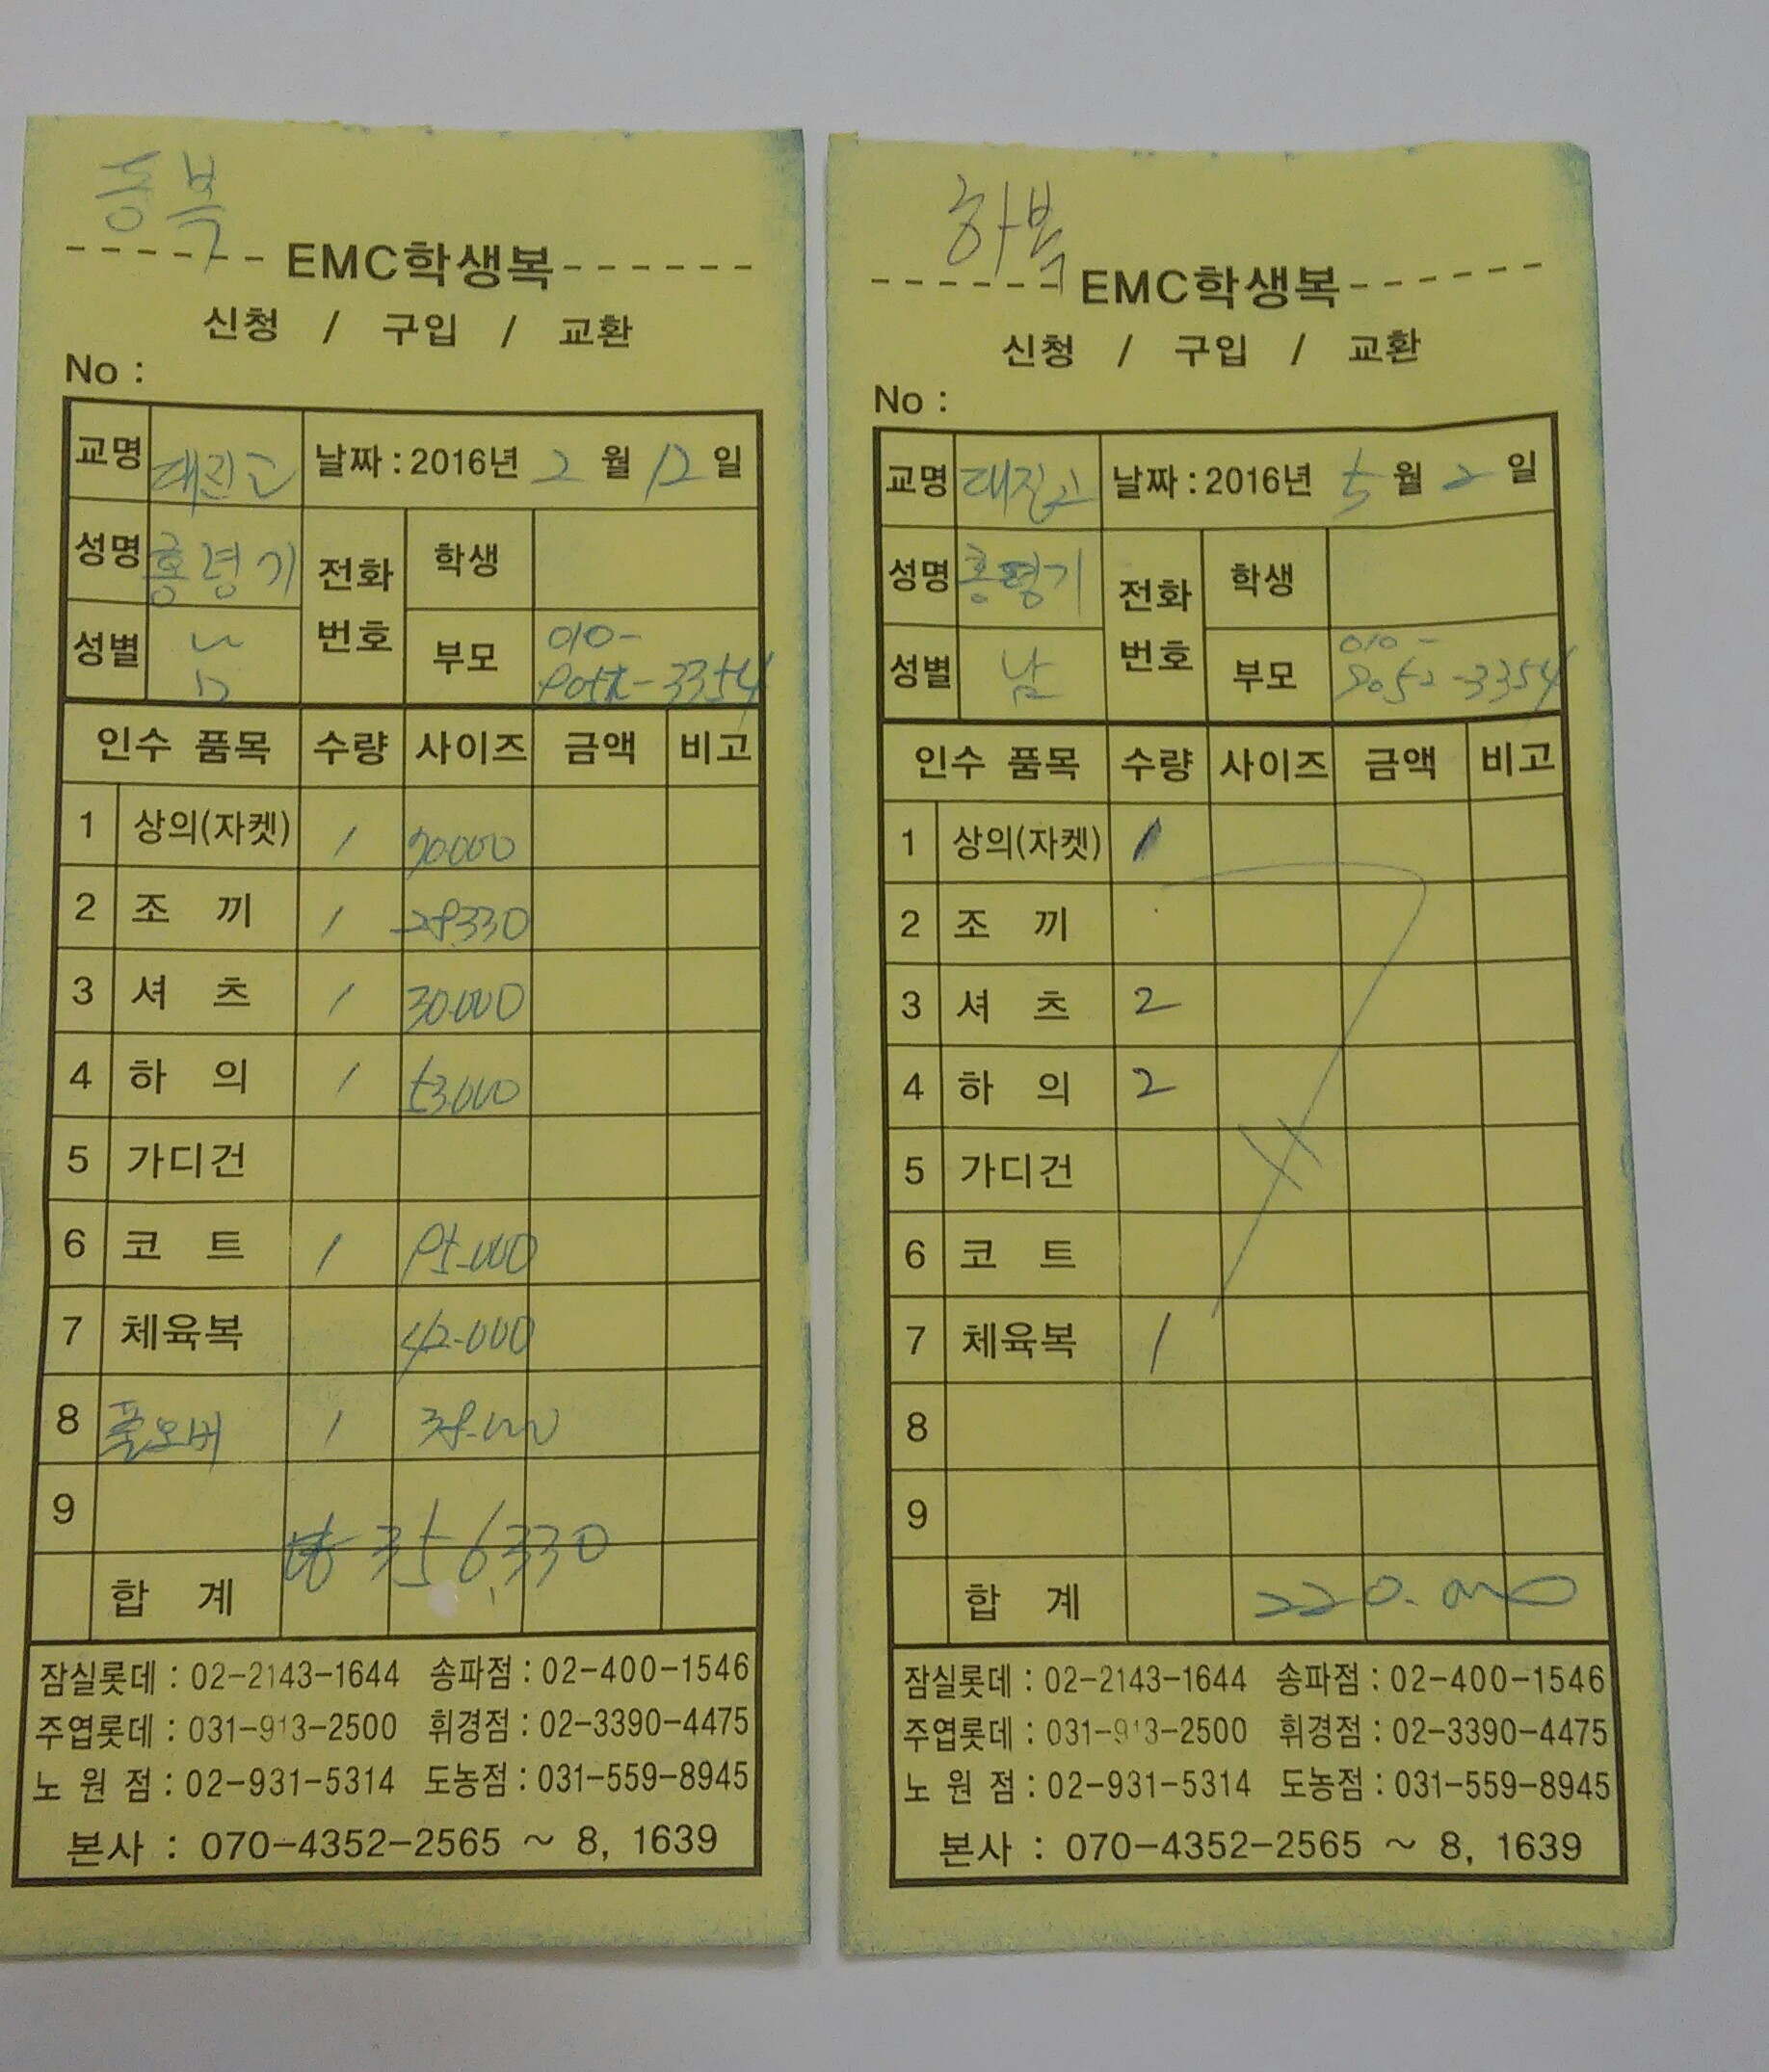 동복
EMC학생복
신청 / 구입 / 교환
No :
교명 대진고 날짜 : 2016년 2 월 12 일
성명 홍령기 전화번호 학생
성별 남 부모 010-
-3354
인수 품목 수량 사이즈 금액 비고
1 상의(자켓) 1 70.000
2 조 끼 1 28.330
3 셔 츠 1 30.000
4 하 의 1 53.000
5 가디건
6 코 트 1 95.000
7 체육복 42.000
8 풀오버 1 38.000
9
합 계 ₩356,330
잠실롯데 : 02-2143-1644 송파점 : 02-400-1546
주엽롯데 : 031-913-2500 휘경점 : 02-3390-4475
노 원 점 : 02-931-5314 도농점 : 031-559-8945
본사 : 070-4352-2565 ~ 8, 1639
하복
EMC학생복
신청 / 구입 / 교환
No :
교명 대진고 날짜 : 2016년 5 월 2 일
성명 전화번호 학생
성별 남 부모 010-
-3354
인수 품목 수량 사이즈 금액 비고
1 상의(자켓) 1
2 조 끼
3 셔 츠 2
4 하 의 2
5 가디건
6 코 트
7 체육복 1
8
9
합 계 220.000
잠실롯데 : 02-2143-1644 송파점 : 02-400-1546
주엽롯데 : 031-913-2500 휘경점 : 02-3390-4475
노 원 점 : 02-931-5314 도농점 : 031-559-8945
본사 : 070-4352-2565 ~ 8, 1639